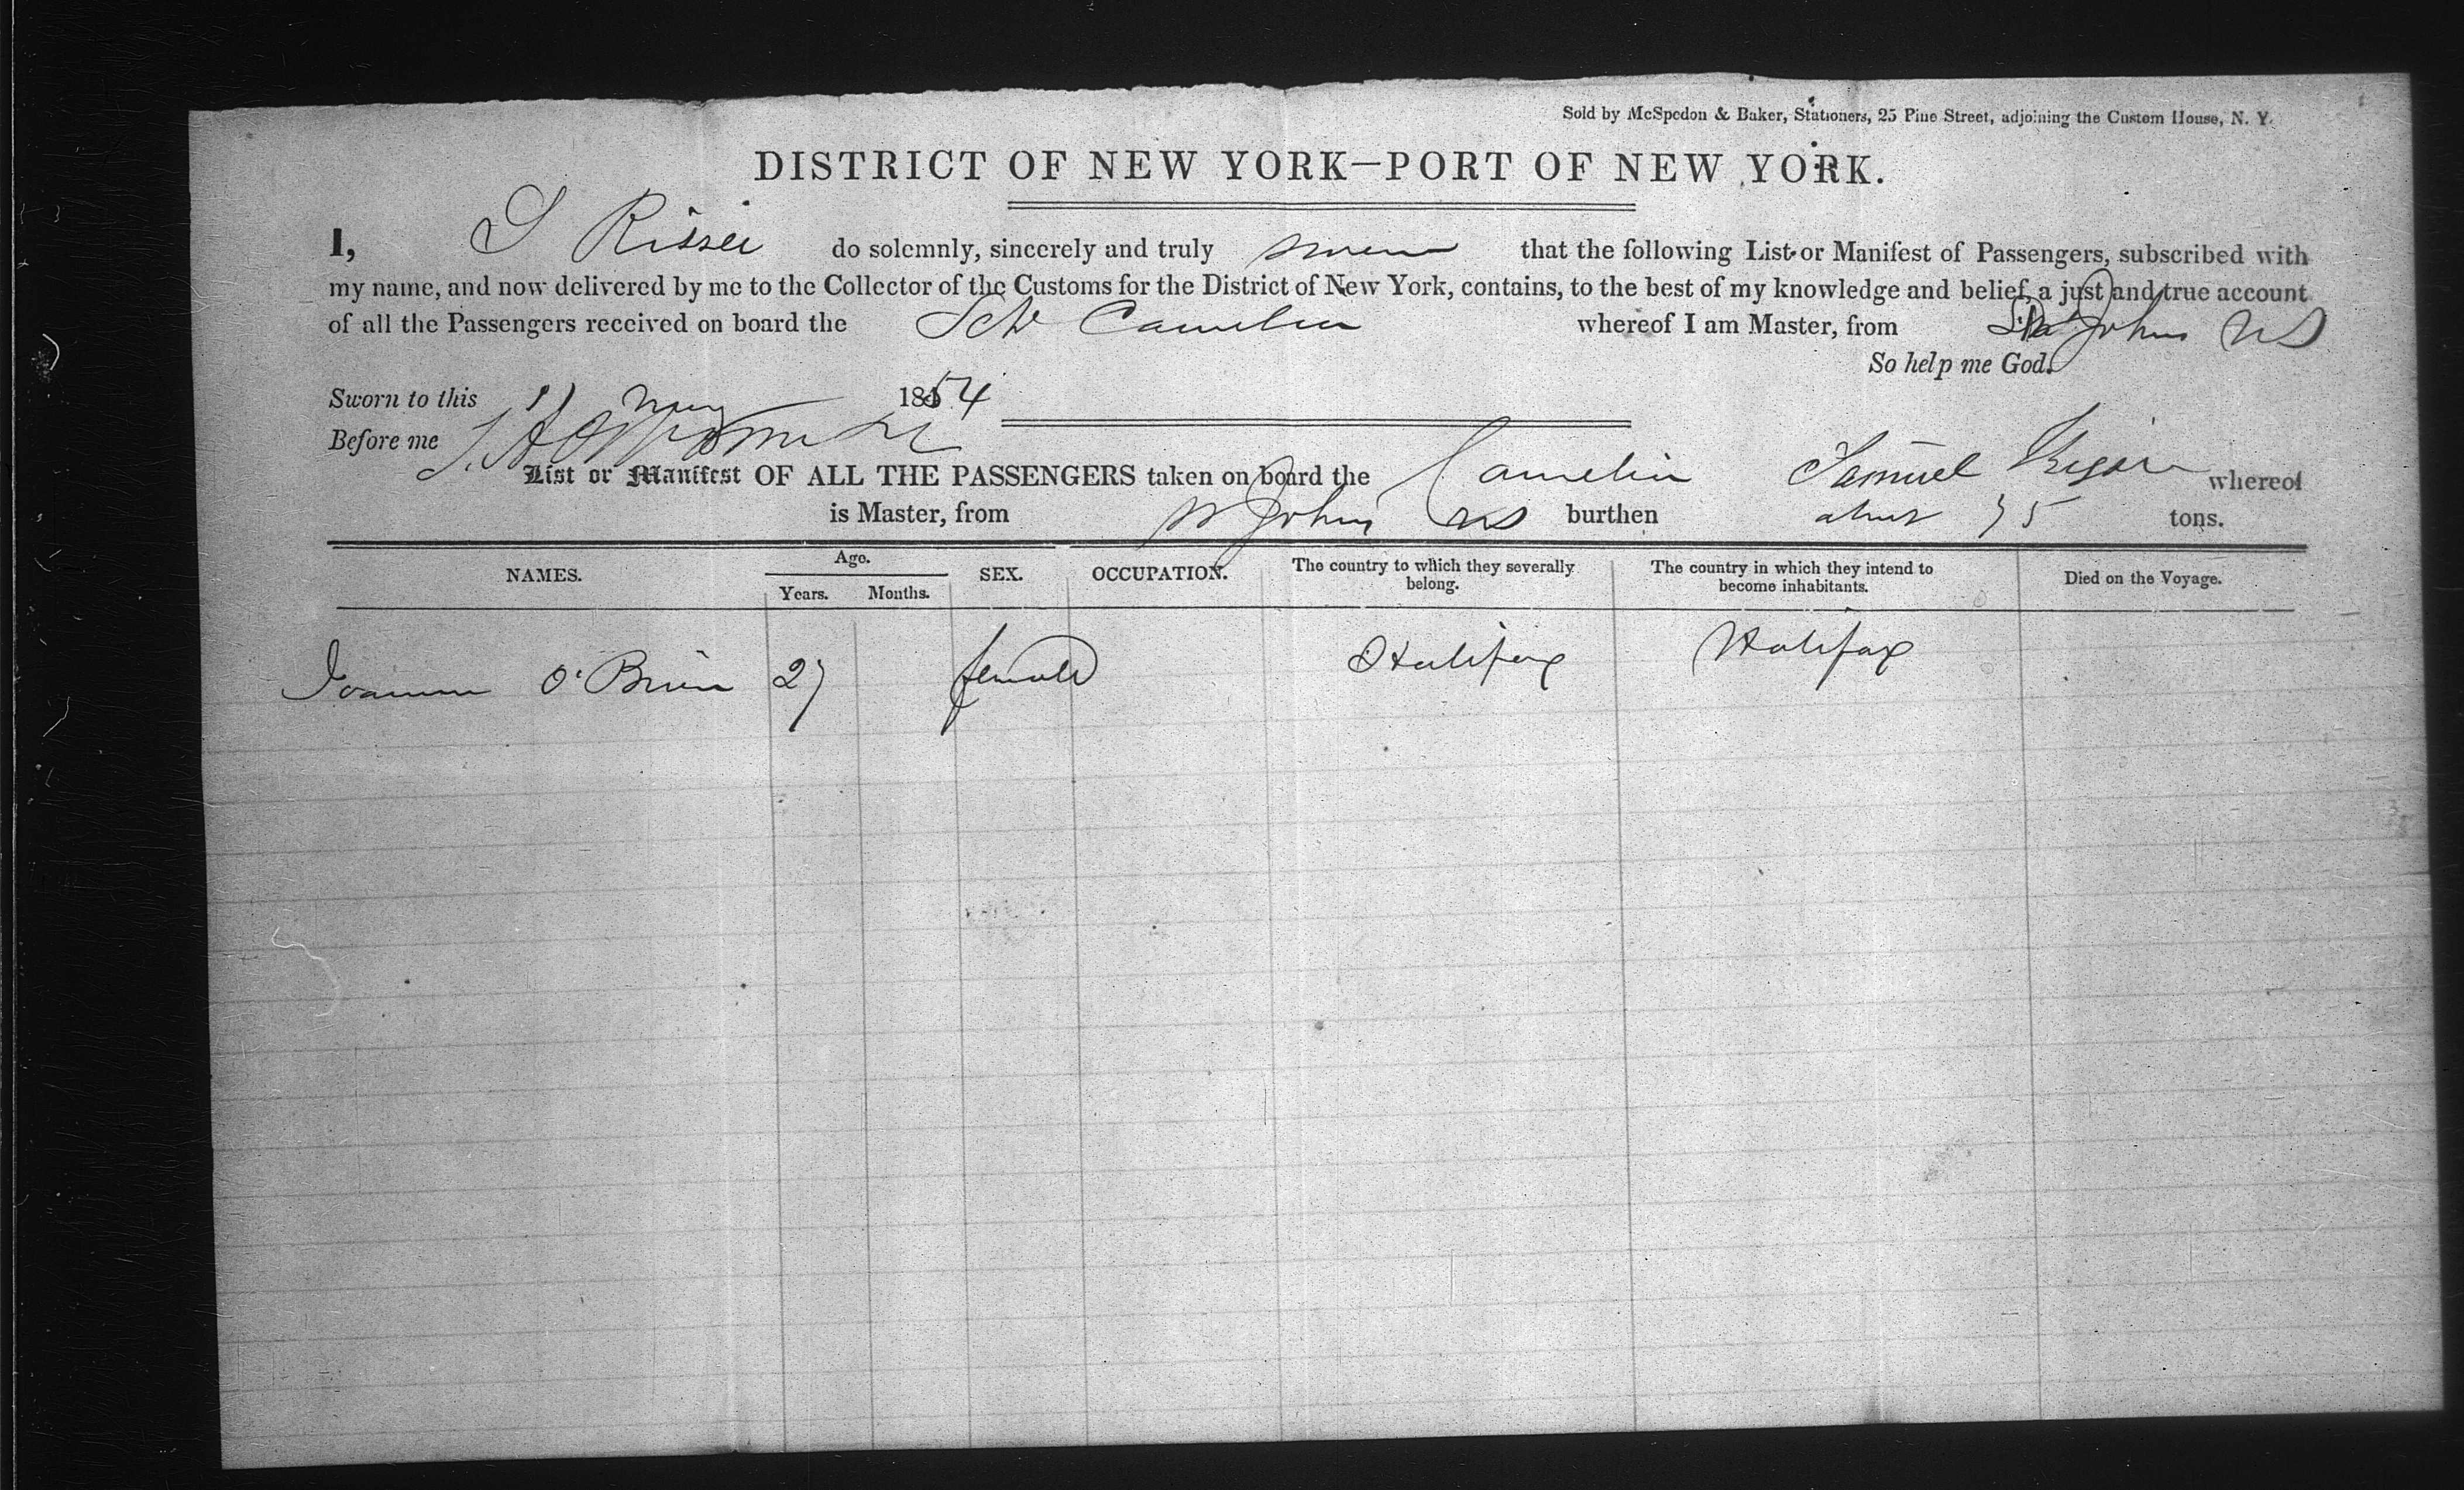 Sold by McSpedon & Baker, Stationers, 25 Pine Street, adjoining the Custom House, N. Y.
DISTRICT OF NEW YORK—PORT OF NEW YORK.
I, S do solemnly, sincerely and truly swear that the following List or Manifest of Passengers, subscribed with
my name, and now delivered by me to the Collector of the Customs for the District of New York, contains, to the best of my knowledge and belief, a just and true account
of all the Passengers received on board the Sch Camelia whereof I am Master, from Johns
So help me God.
Sworn to this May 1854
Before me
List or Manifest OF ALL THE PASSENGERS taken on board the Camelia Samuel whereof
is Master, from Johns burthen about 75 tons.
NAMES. Age. SEX. OCCUPATION. The country to which they severally belong. The country in which they intend to become inhabitants. Died on the Voyage.
Years. Months.
O'Brien 27 female Halifax Halifax